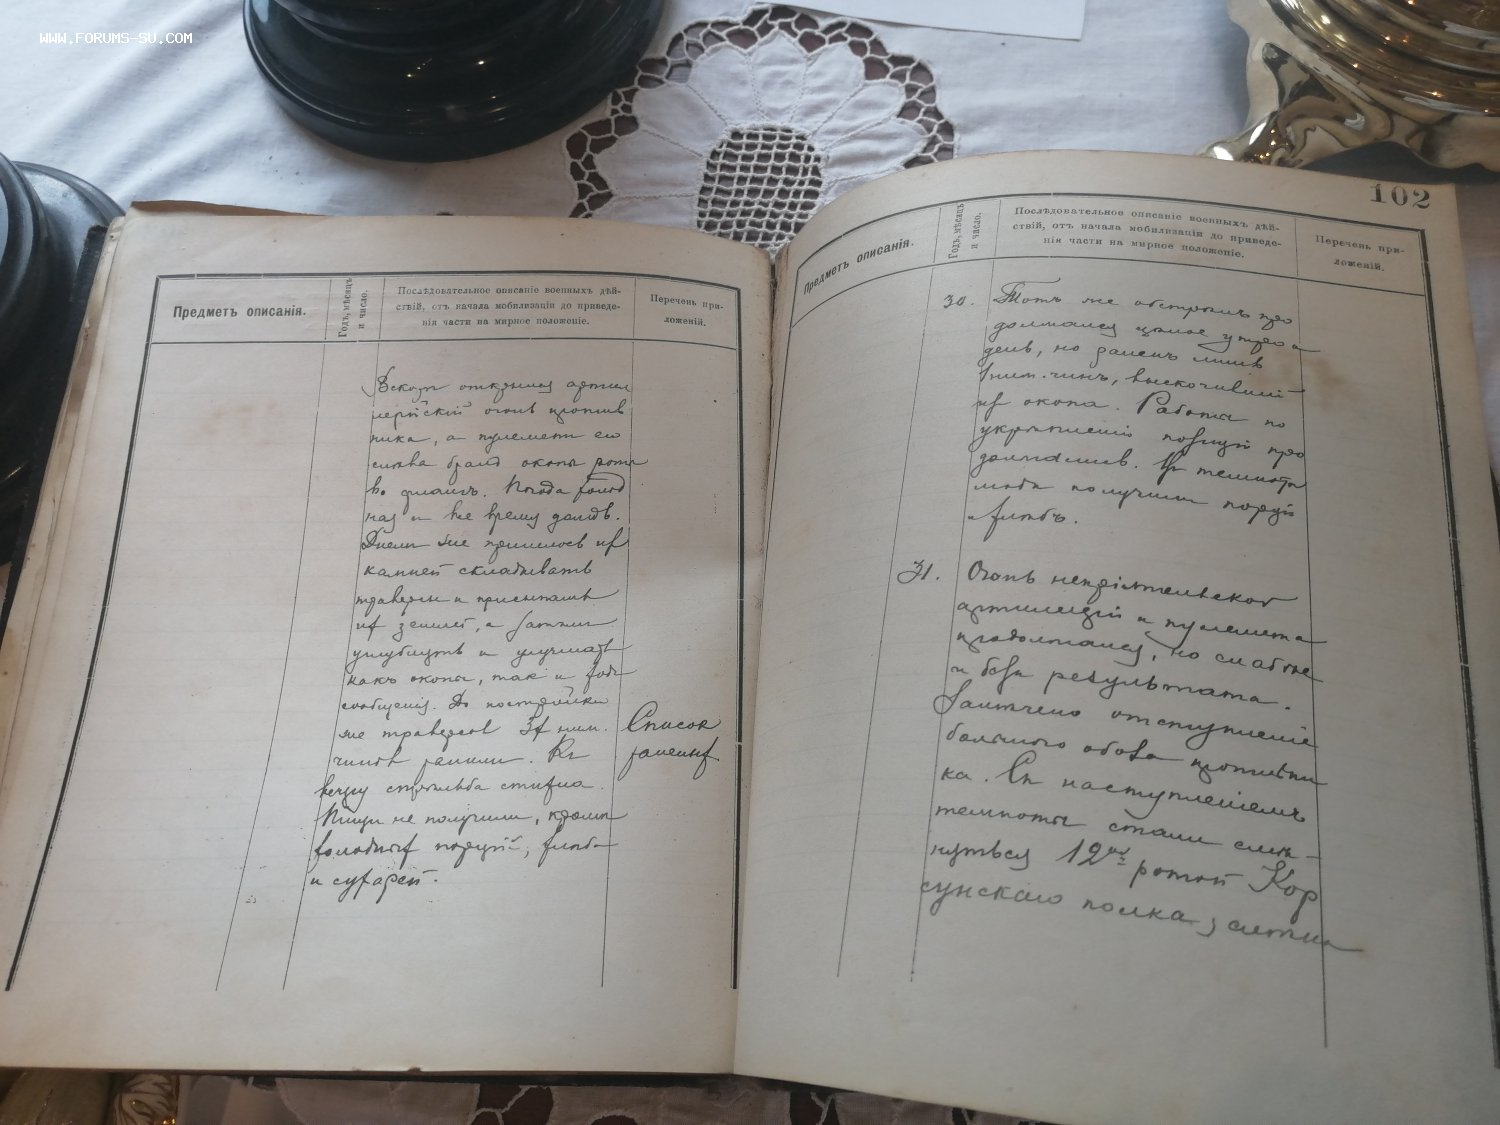 WWW.FORUMS-SU.COM
Предметъ описанія.
Годъ, мѣсяцъ
и число.
Послѣдовательное описаніе военныхъ дѣй-
ствій, отъ начала мобилизаціи до приведе-
нія части на мирное положеніе.
Перечень при-
ложеній.
Вскорѣ открылся артил
лерійскій огонь против
ника, а пулеметъ его
снова бралъ окопы роты
во флангъ. Погода
и все время дождь.
Днемъ же пришлось из
камней складывать
траверсы и присыпать
из землей, а
углублять и улучшать
какъ окопы, так и ходы
сообщенія. До постройки
же траверсов ниж.
чиновъ ранили. Къ
вечеру стрѣльба стихла.
Пищи не получили, кромѣ
холодных порцій, хлѣба
и сухарей.
Список
раненых
102
Предметъ описанія.
Годъ, мѣсяцъ
и число.
Послѣдовательное описаніе военныхъ дѣй-
ствій, отъ начала мобилизаціи до приведе-
нія части на мирное положеніе.
Перечень при-
ложеній.
30. Тотъ же обстрѣлъ про
должался цѣлое утро и
день, но раненъ лишь
1 ниж. чинъ, выскочившій
из окопа. Работы по
укрѣпленію позицій про
должались. Къ темнотѣ
люди получили порціи
и хлѣбъ.
31. Огонь непріятельской
артиллеріи и пулемета
продолжался, но слабѣе
и безъ результата.
Замѣчено отступленіе
большого обоза противни
ка. Съ наступленіемъ
темноты стали смѣ-
няться 12ой ротой Кор
сунскаго полка, смѣна